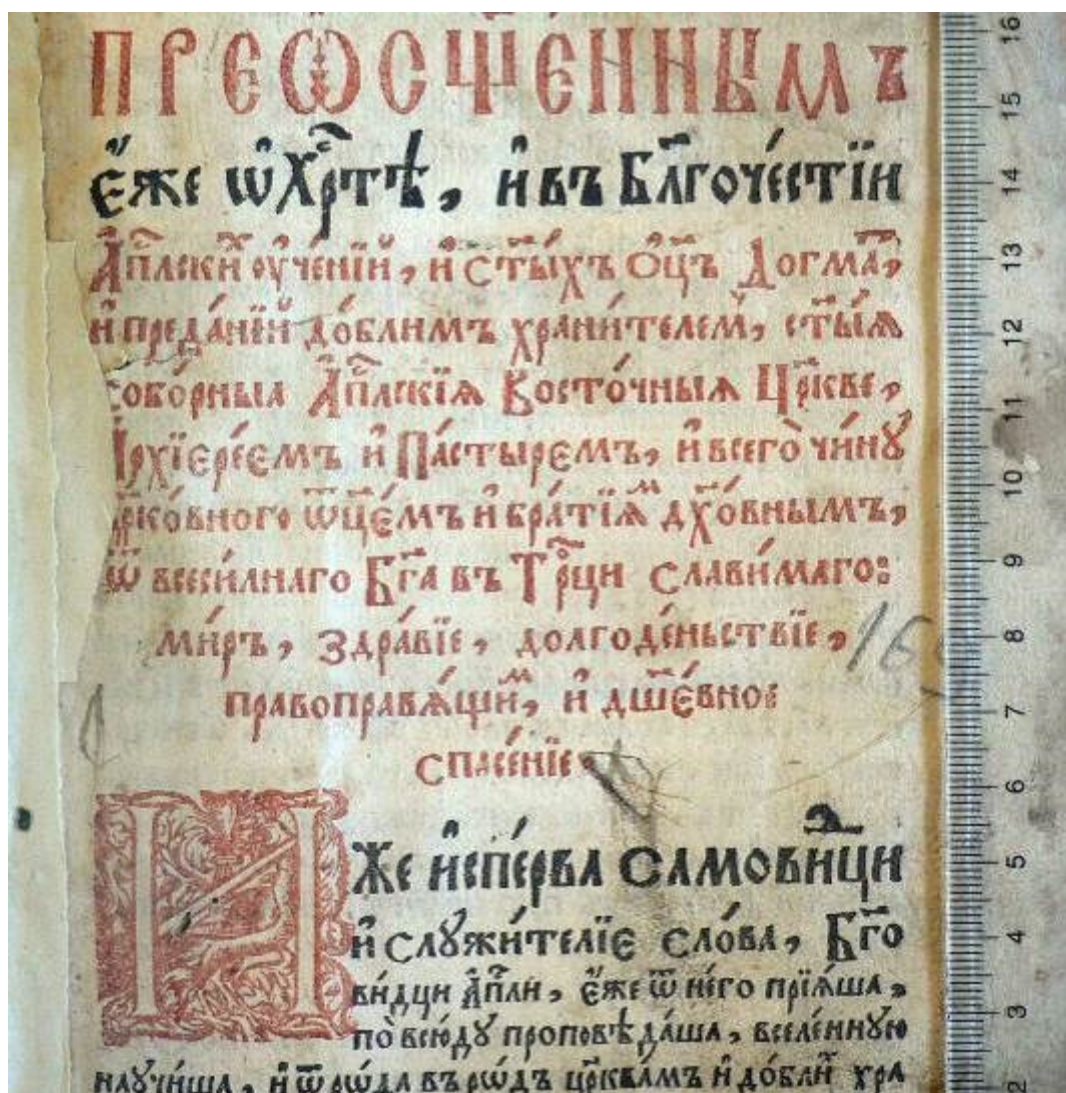 ПРЕѾСЩЕННЫМЪ
Е҆́же ѡ҆ Хрⷭ҇тѣ, и҆ въ Бл҃гоче́стїи
А҆пⷭ҇лски оу҆че́нїй, и҆ ст҃ы́хъ Ѻ҆ц҃ъ Догма́,
и҆ преда́нїй до́блимъ храни́телем, ст҃ы́ѧ
собо́рныѧ А҆пⷭ҇лскїѧ Восто́чныѧ Цр҃кве,
А҆рхїере́емъ и҆ Па́стыремъ, и҆ всего̀ чи́нꙋ
цр҃ко́вного ѿц҃е́мъ и҆ бра́тїѧⷨ дх҃о́внымъ,
ѿ всеси́лнаго Бг҃а въ Трⷪ҇ци сла́вимаго:
ми́ръ, здра́вїе, долгоде́ньствїе,
правопра́вѧщиⷨ, и҆ дш҃е́вное
спасе́нїе.
И҆́Же и҆спе́рва самови́дци
и҆ слꙋжи́телїе сло́ва, Бг҃о
ви́дци а҆пⷭ҇ли, е҆́же ѿ не́го прїѧ́ша,
по всю́дꙋ проповѣ́даша, вселе́ннꙋю
наꙋчи́ша, и҆ ѿ рѡ́да въ рѡ́дъ цр҃квамъ и҆ до́бли хра
16
15
14
13
12
11
10
9
8
7
6
5
4
3
2